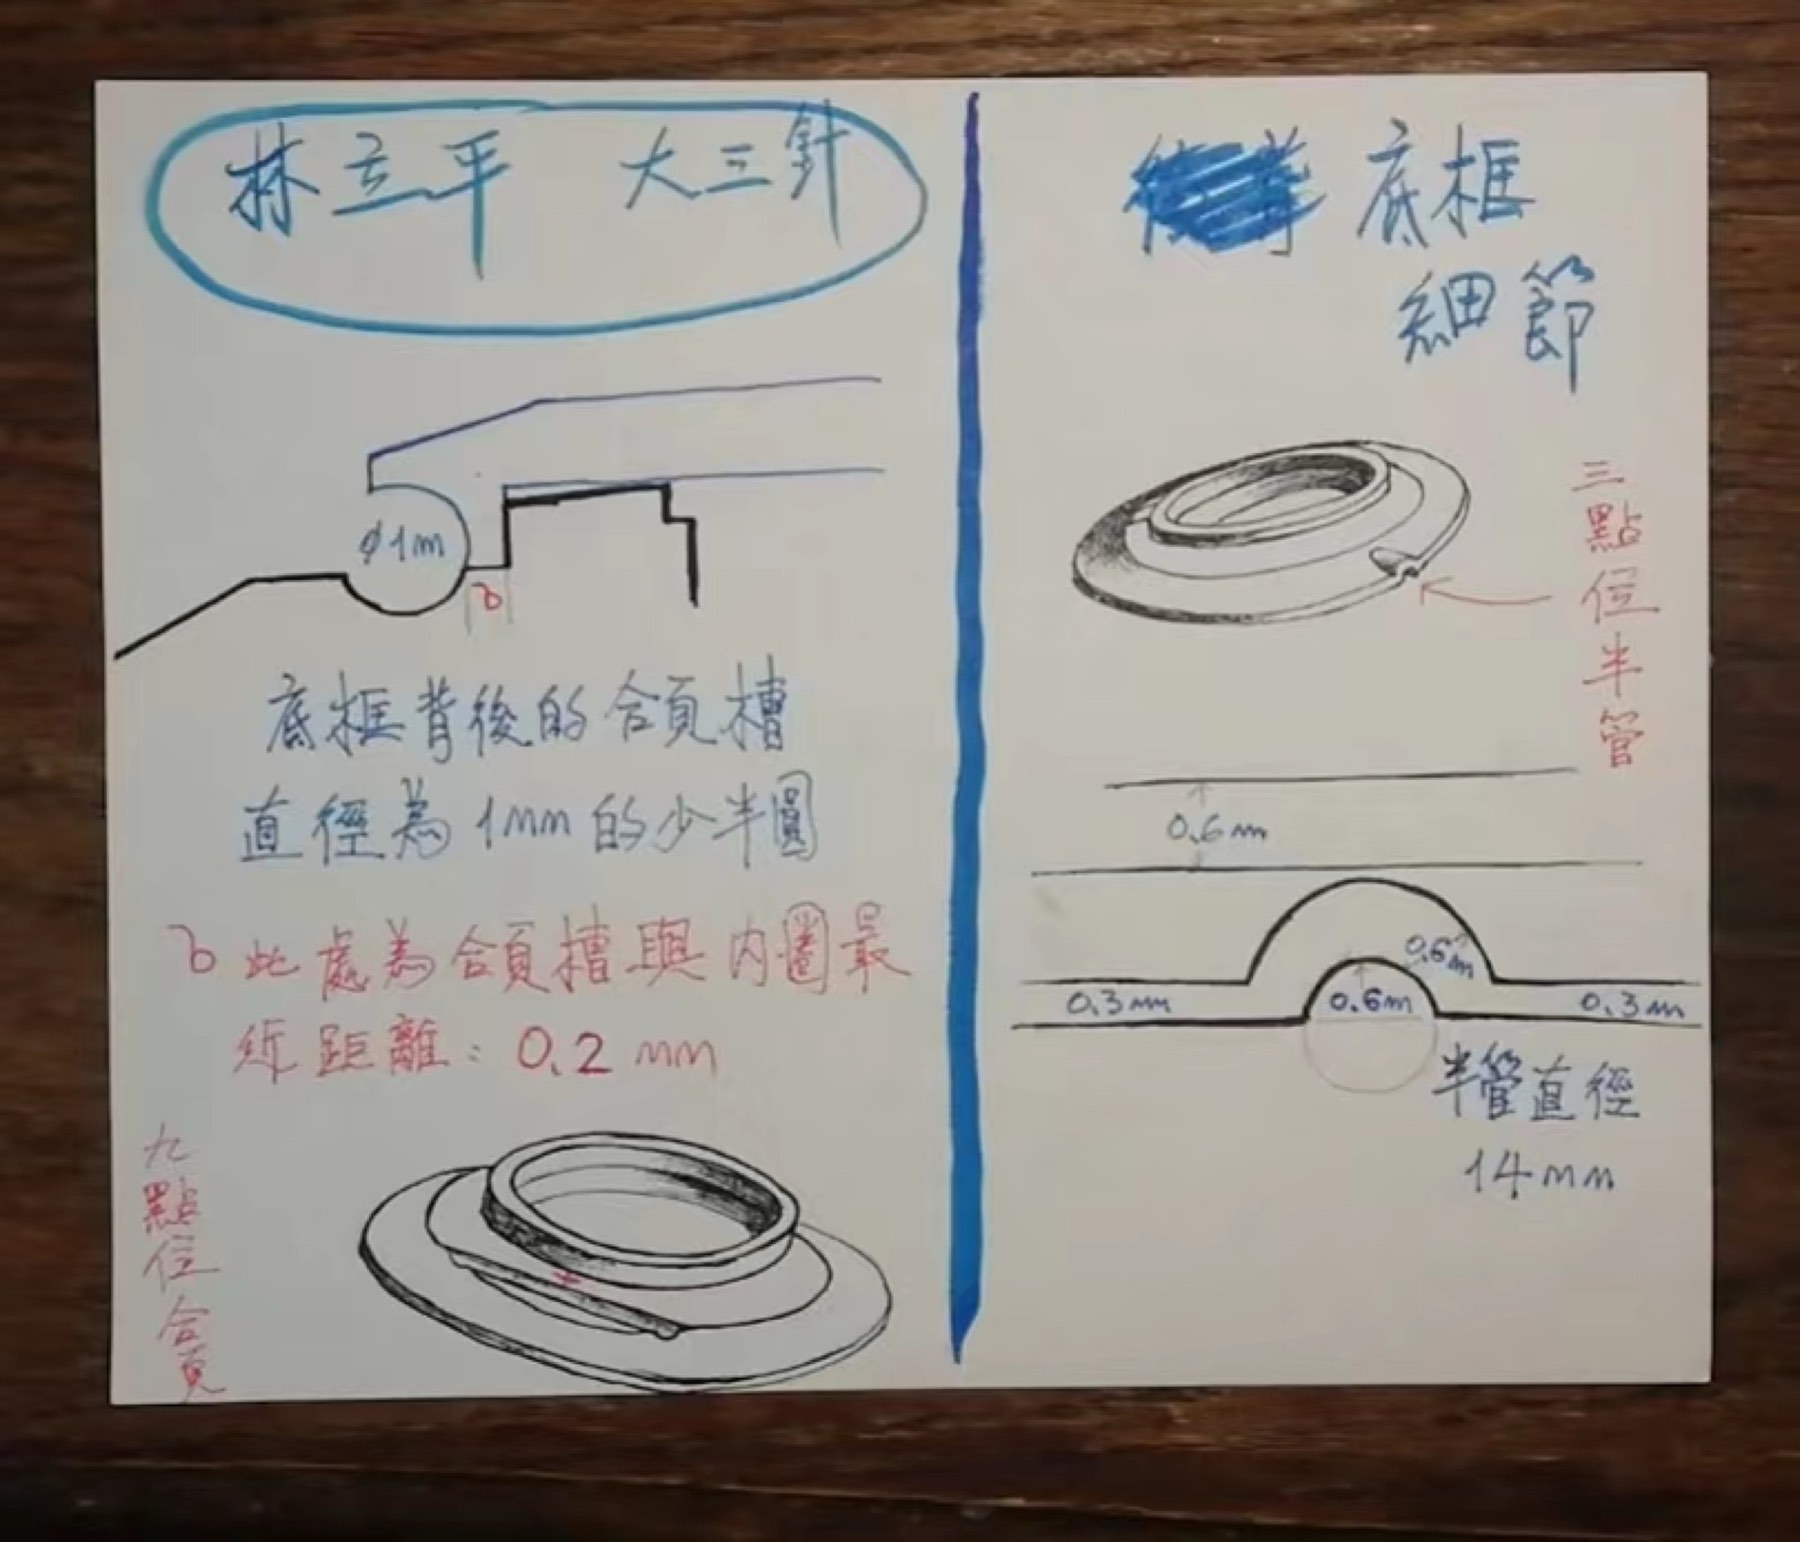 林立平 大三針
ϕ1m
b
底框背後的合頁槽
直徑為1mm的少半圓
b 此處為合頁槽與内圈最
近距離:0.2mm
九點位合頁
底框
細節
三點位半管
0.6m
0.6m
0.3mm 0.6m 0.3mm
半管直徑
14mm